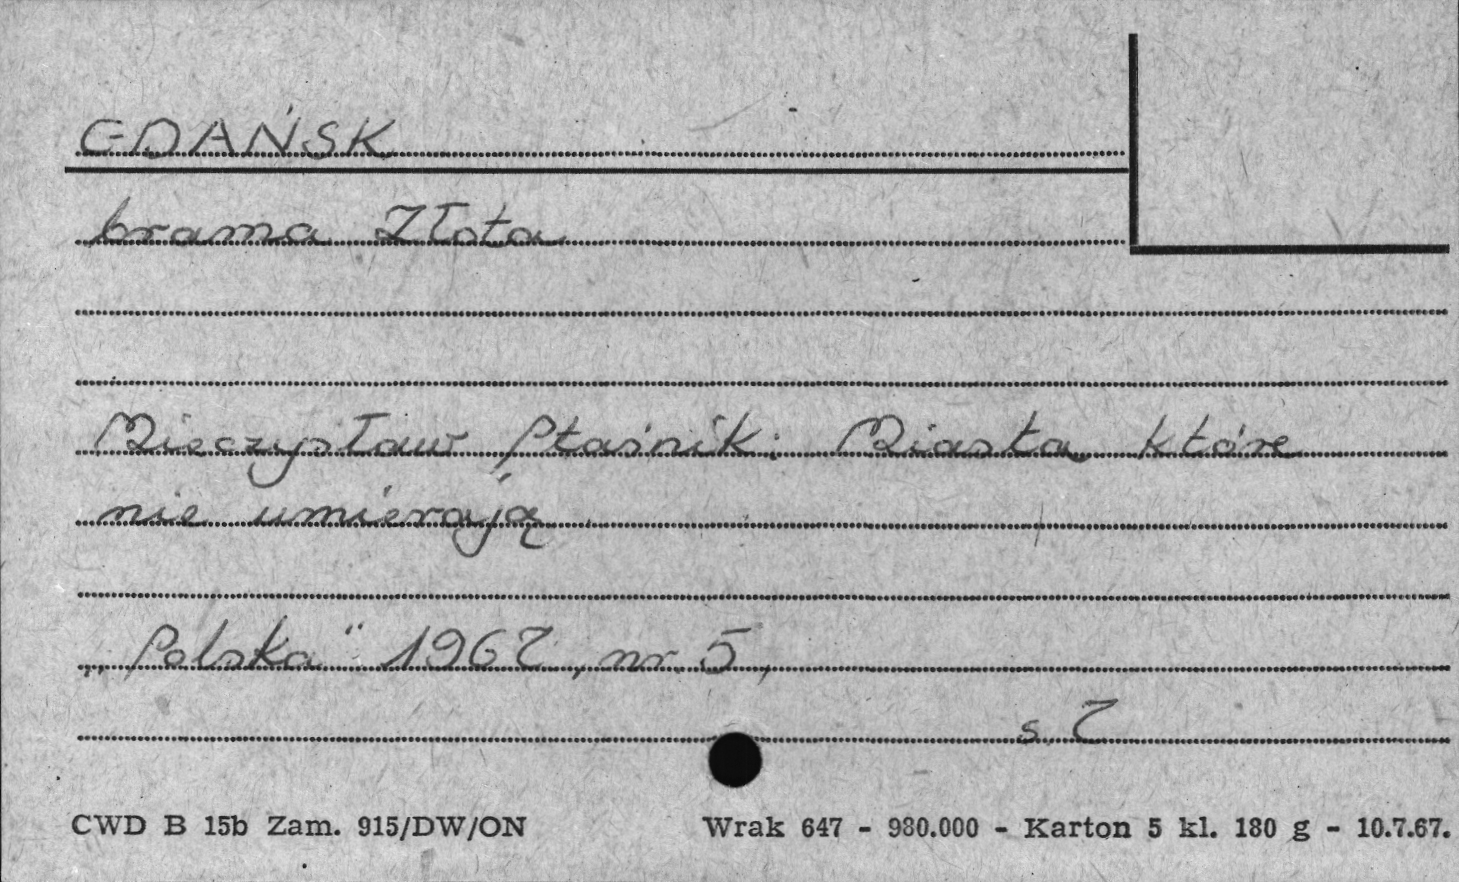 GDAŃSK
brama Złota
Mieczysław Ptaśnik: Miasta, które
nie umierają
„Polska" 1967, nr. 5,
s. 7
CWD B 15b Zam. 915/DW/ON Wrak 647 - 980.000 - Karton 5 kl. 180 g - 10.7.67.